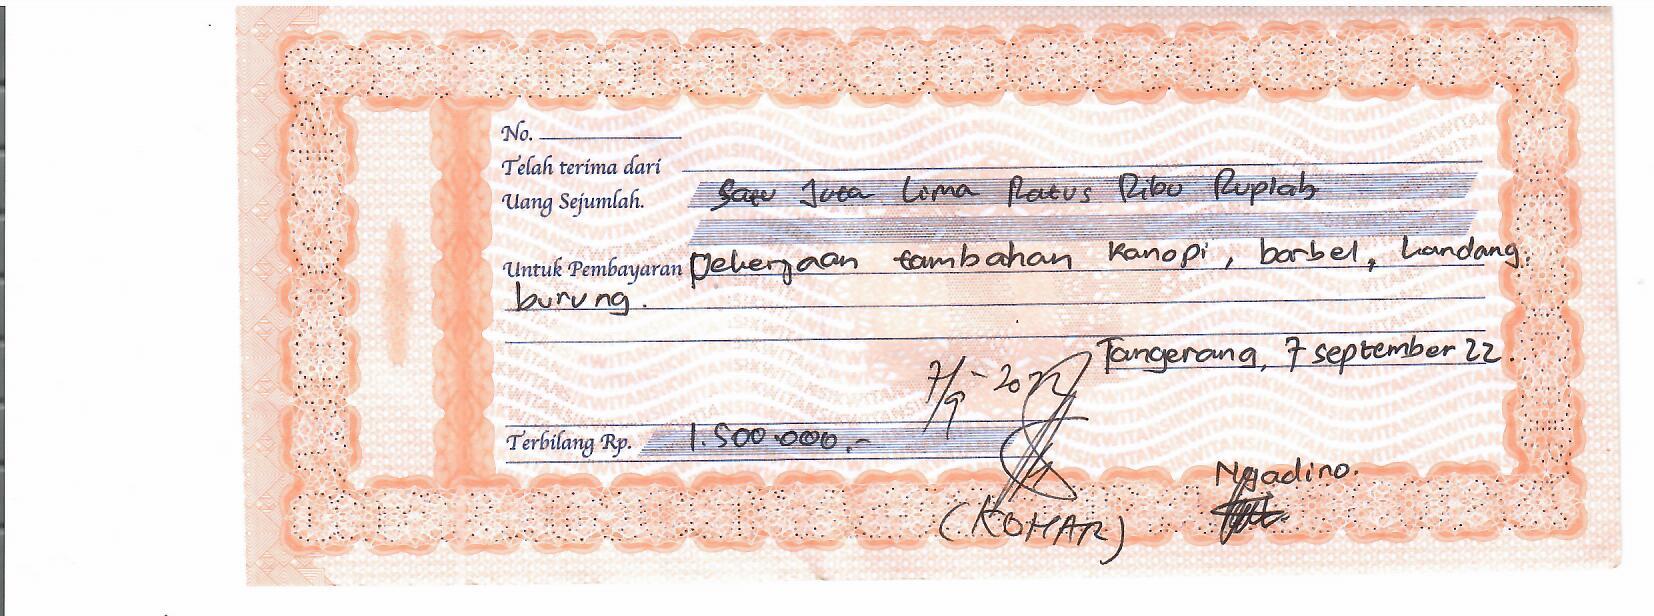 No.
Telah terima dari
Uang Sejumlah. Satu Juta Lima Ratus Ribu Rupiah
Untuk Pembayaran pekerjaan tambahan kanopi, barbel, kandang.
burung.
Tangerang, 7 september 22.
7/9-2022
Terbilang Rp. 1.500.000.-
Ngadino.
(KOMAR)